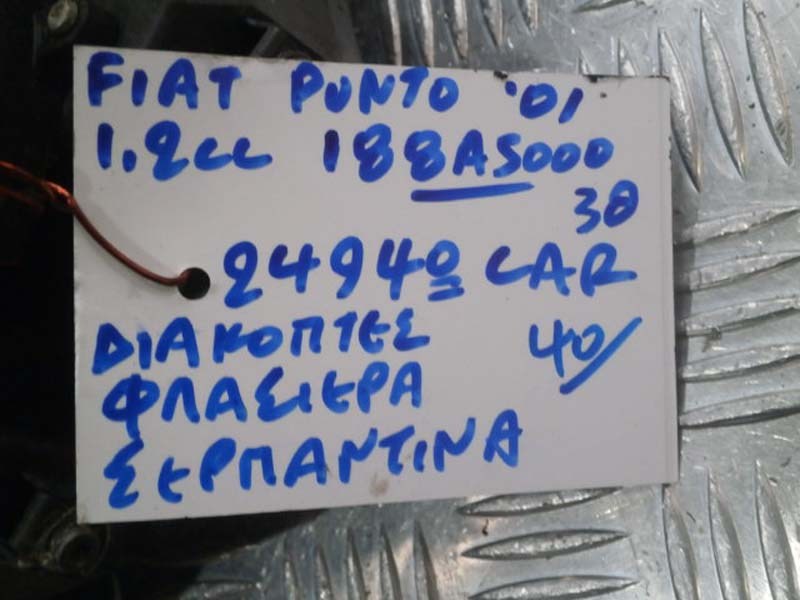 FIAT PUNTO '01
1.2cc 188A5000
3Θ
24940 CAR
ΔΙΑΚΟΠΤΕΣ 40/
ΦΛΑΣΙΕΡΑ
ΣΕΡΠΑΝΤΙΝΑ